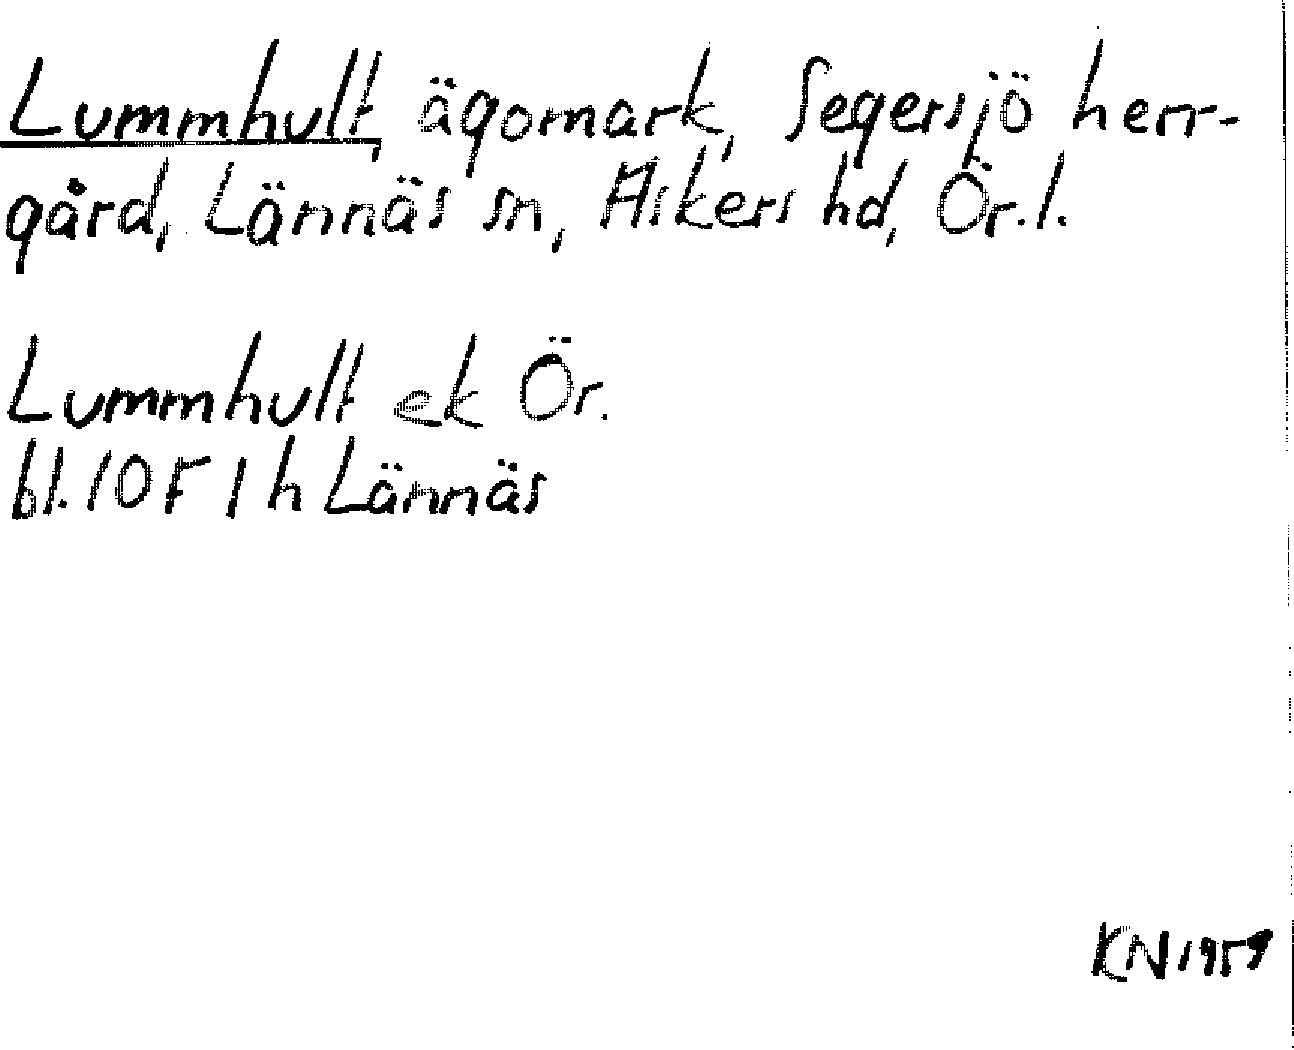 Lummhult, ägomark, Segersjö herr-
gård, Lännäs sn, Askers hd, Ör. l.
Lummhult ek Ör.
bl. 10F 1h Lännäs
KN 1959